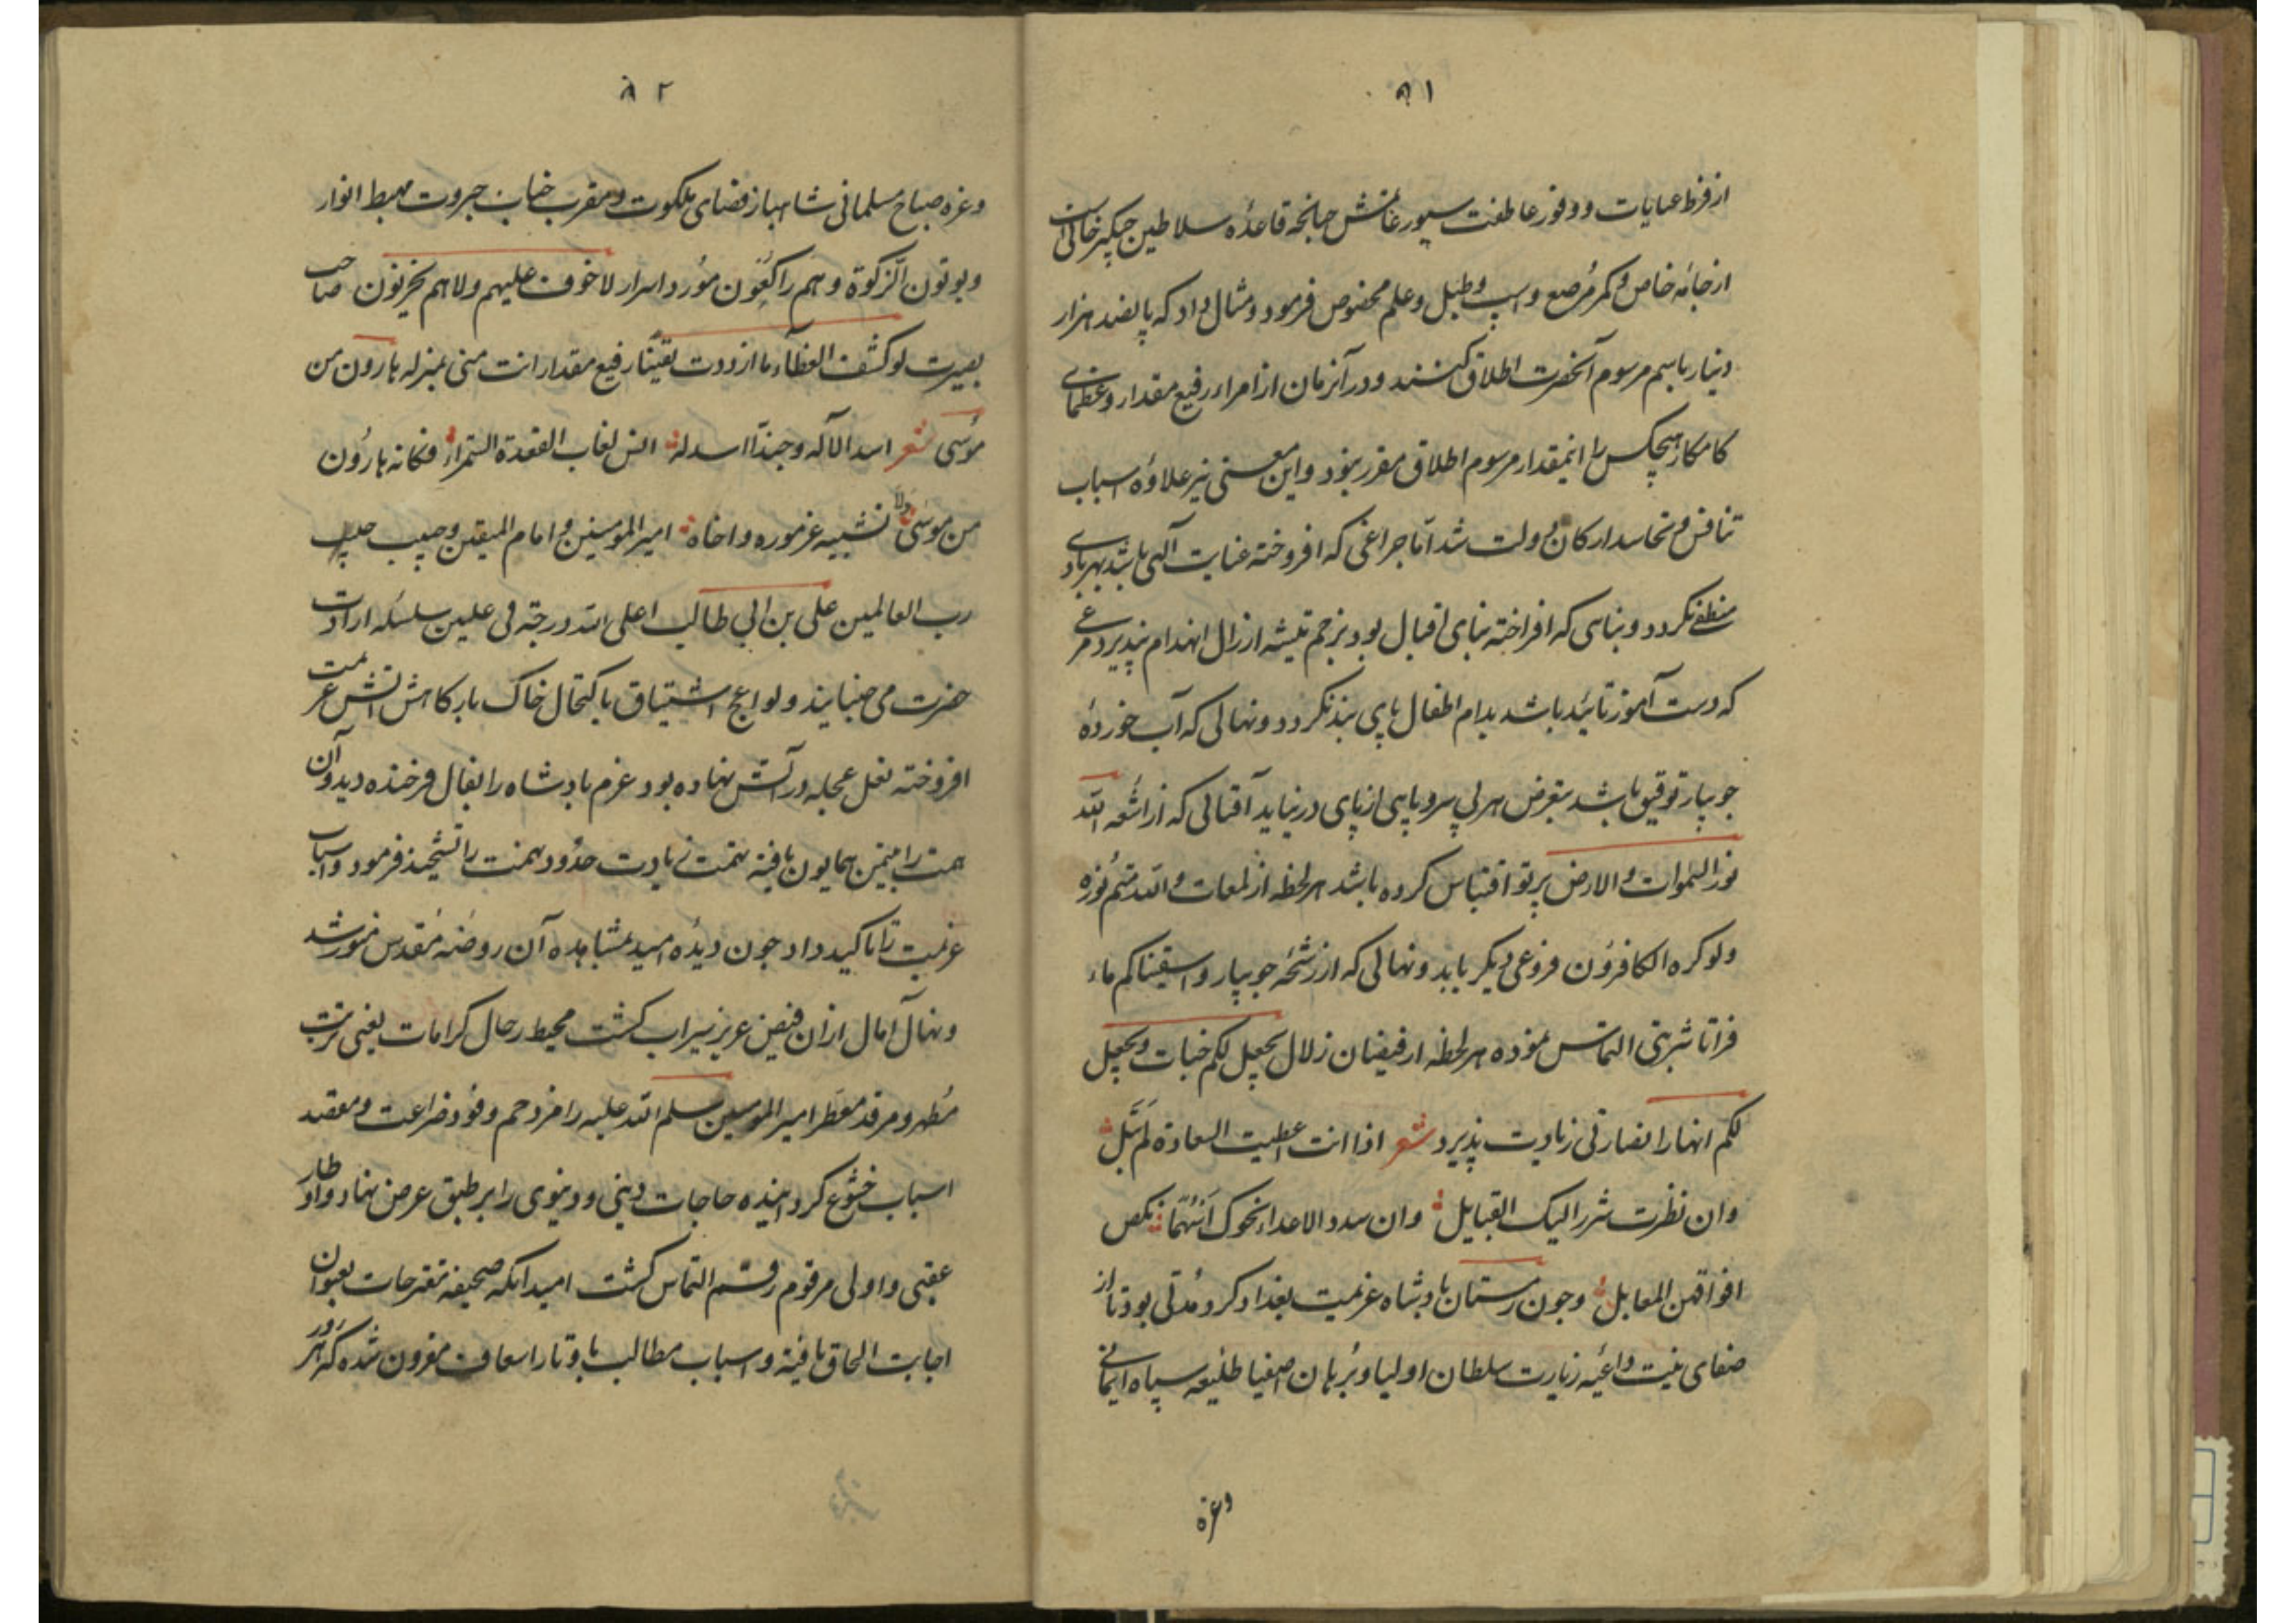 ۹۱
از فرط عنایات و وفور عاطفت سیورغامش چنانچه قاعدهٔ سلاطین چنگیزخانی است
از جامهٔ خاص و کمر مرصع و اسپ و طبل و علم مخصوص فرمود و مثال داد که پانصد هزار
دینار باسم مرسوم آنحضرت اطلاق کنند و در آنزمان از امراء رفیع مقدار و عظمای
کامکار هیچکس را اینمقدار مرسوم اطلاق مقرر نبود و این معنی نیز علاوهٔ اسباب
تنافس و تحاسد ارکان دولت شد اما چراغی که افروختهٔ عنایت آلهی باشد بهر بادی
منطفی نکردد و بنایی که افراختهٔ بنای اقبال بود بزخم تیشه ارزال انهدام نپذیرد مرغی
که دست آموز تائید باشد بدام اطفال پای بند نکردد و نهالی که آب خوردهٔ
جویبار توفیق باشد بتعرض هر بی سر و پایی از پای در نیاید آفتابی که از اشعه الله
نور السموات والارض پرتو اقتباس کرده باشد هر لحظه از لمعات والله متم نوره
ولو کره الکافرون فروغی دیکر یابد و نهالی که از رشحهٔ جویبار واسقیناکم ماء
فراتا شربتی التماس نموده هر لحظه از فیضان زلال یجعل لکم جنات ویجعل
لکم انهارا نضارتی زیادت پذیرد شعر اذا انت اعطیت السعادة لم تبل
وان نظرت شزرا الیک القبایل وان سدد الاعداء نحوک اسهما نکص
افواقهن المعابل وچون زمستان پادشاه عزیمت بغداد کرد و مدتی بود تا از
صفای نیت داعیه زیارت سلطان اولیا و برهان اصفیا طلیعه سپاه ایمانی
وغره
۹۲
وغره صباح مسلمانی شاهباز فضای ملکوت و مقرب جناب جبروت مهبط انوار
ویوتون الزکوة وهم راکعون مورد اسرار لا خوف علیهم ولا هم یحزنون صاحب
بصیرت لو کشف الغطاء ما ازددت یقینا رفیع مقدار انت منی بمنزله هارون من
موسی شعر اسد الآله وحبذا اسد له الشمراء فکانه هارون
من موسی ولا تشبیه واخاه امیر المومنین و امام المتقین و حبیب حبیب
رب العالمین علی بن ابی طالب اعلی الله درجته فی علیین سلسله ارادت
حضرت می جنبانید و لواعج اشتیاق باکتحال خاک بارکاهش آتش عزیمت
افروخته نعل عجله در آتش نهاده بود عزم پادشاه را بفال فرخنده دید و آن
همت را میمن همایون یافته نهمت زیادت حدود همت را تشحیذ فرمود و اسباب
عزیمت را تاکید داد چون دیده امید بمشاهده آن روضه مقدس منور شد
و نهال آمال از آن فیض عزیز سیراب کشت محیط رحال کرامات یعنی تربت
مطهر و مرقد معطر امیر المومنین سلم الله علیه را مزدحم وفود ضراعت و معقد
اسباب خشوع کردانیده حاجات دینی و دنیوی را بر طبق عرض نهاد و اوطار
عقبی و اولی مرقوم رقم التماس کشت امید انکه صحیفه مقترحات بعنوان
اجابت الحاق یافته و اسباب مطالب باوتار اسعاف مقرون شده که هر روز